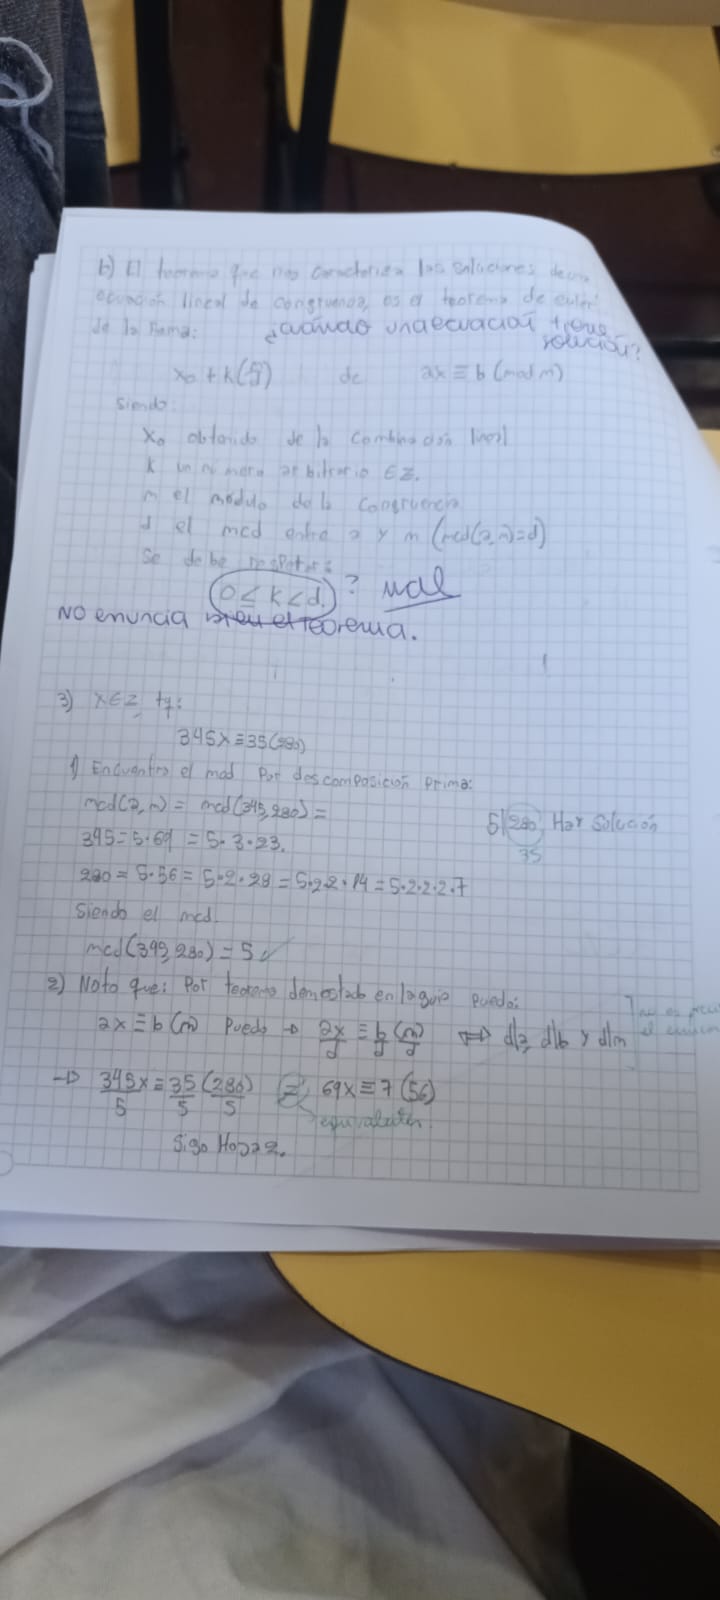 b) El teorema que nos caracteriza las soluciones de una
ecuación lineal de congruencia, es el teorema de euler
de la forma: ¿cuándo una ecuación tiene
solución?
x₀ + k(m/d) de ax ≡ b (mod m)
siendo:
x₀ obtenido de la combinación lineal
k un número arbitrario ∈ Z.
m el módulo de la congruencia
d el mcd entre a y m (mcd(a,m)=d)
Se debe respetar:
0 ≤ k < d. ? mal
NO enuncia bien el teorema.
3) x∈Z tq:
345x ≡ 35(280)
1) Encuentro el mcd por descomposición prima:
mcd(a,m) = mcd(345,280) =
5|280 Hay solución
35
345 = 5·69 = 5·3·23.
280 = 5·56 = 5·2·28 = 5·2·2·14 = 5·2·2·2·7
Siendo el mcd.
mcd(345,280) = 5 ✓
2) Noto que: Por teorema demostrado en la guía puedo:
ax ≡ b (m) Puedo → ax/d ≡ b/d (m/d) ⟺ d|a, d|b y d|m
→ 345x/5 ≡ 35/5 (280/5) = 69x ≡ 7 (56)
equivalentes
Sigo Hoja 2.